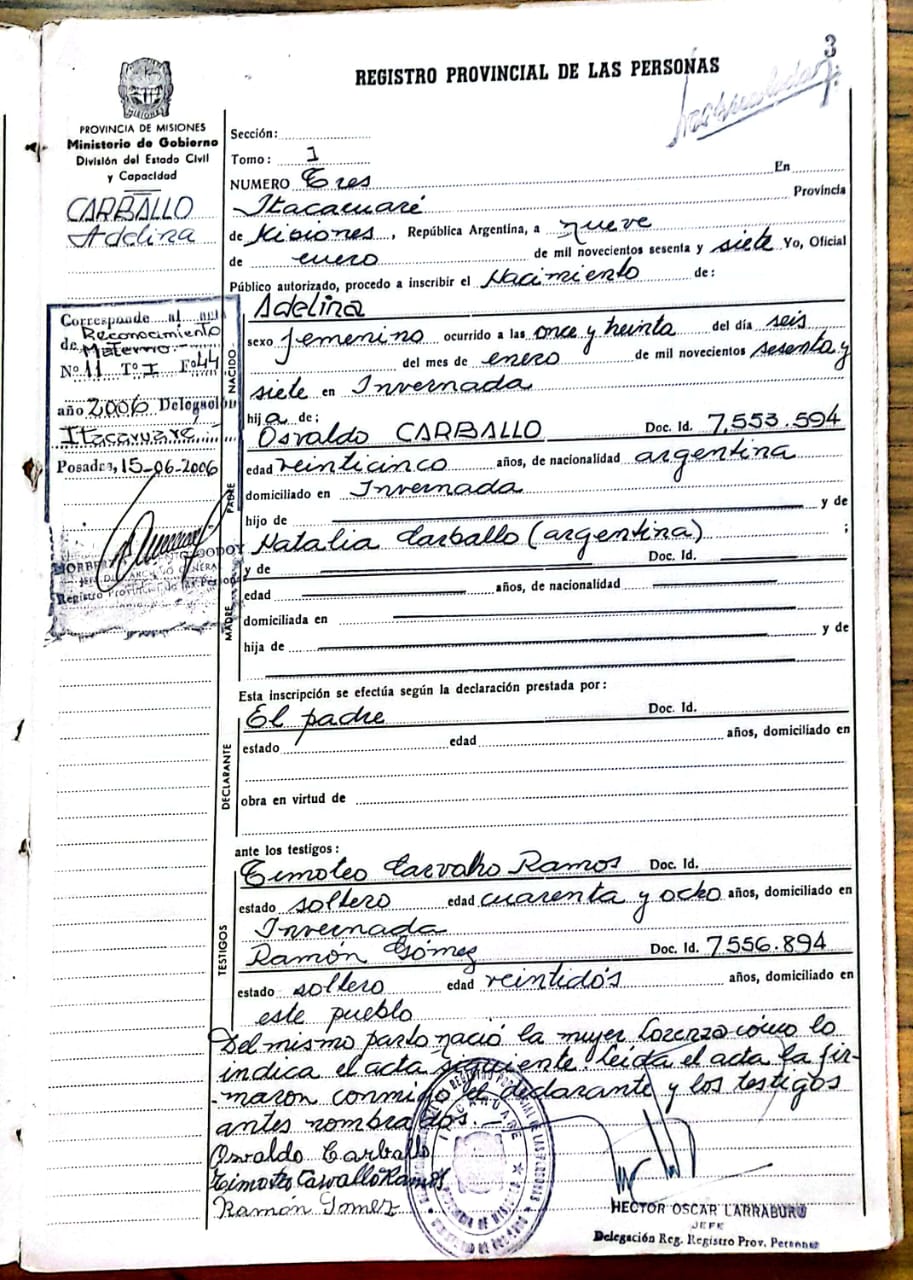 3
REGISTRO PROVINCIAL DE LAS PERSONAS
MISIONES
PROVINCIA DE MISIONES
Ministerio de Gobierno
División del Estado Civil
y Capacidad
CARBALLO
Adelina
Corresponde al
de Reconocimiento
Materno.-
Nº 11 Tº I Fº 44
año 2006 Delegación
Itacaruaré.-
Posadas, 15-06-2006
Sección:
Tomo: I
NUMERO Tres En
Itacaruaré Provincia
de Misiones, República Argentina, a nueve
de enero de mil novecientos sesenta y siete Yo, Oficial
Público autorizado, procedo a inscribir el Nacimiento de:
NACIDO
Adelina
sexo femenino ocurrido a las once y treinta del día seis
del mes de enero de mil novecientos sesenta y
siete en Invernada
hija de;
PADRE
Osvaldo CARBALLO Doc. Id. 7,553.594
edad veinticinco años, de nacionalidad argentina
domiciliado en Invernada
hijo de y de
Natalia Carballo (argentina) ;
MADRE
y de Doc. Id.
edad años, de nacionalidad
domiciliada en
hija de y de
Esta inscripción se efectúa según la declaración prestada por:
DECLARANTE
El padre Doc. Id.
estado edad años, domiciliado en
obra en virtud de
ante los testigos:
TESTIGOS
Timoteo Carvalho Ramos Doc. Id.
estado soltero edad cuarenta y ocho años, domiciliado en
Invernada
Ramón Gómez Doc. Id. 7556.894
estado soltero edad veintidós años, domiciliado en
este pueblo
Del mismo parto nació la mujer Lorenza cómo lo
indica el acta siguiente. leida el acta la fir-
-maron conmigo el declarante y los testigos
antes nombrados.-
Osvaldo Carballo
Timoteo Carvallo Ramos
Ramón Gomez
HECTOR OSCAR LARRABURU
JEFE
Delegación Reg. Registro Prov. Personas